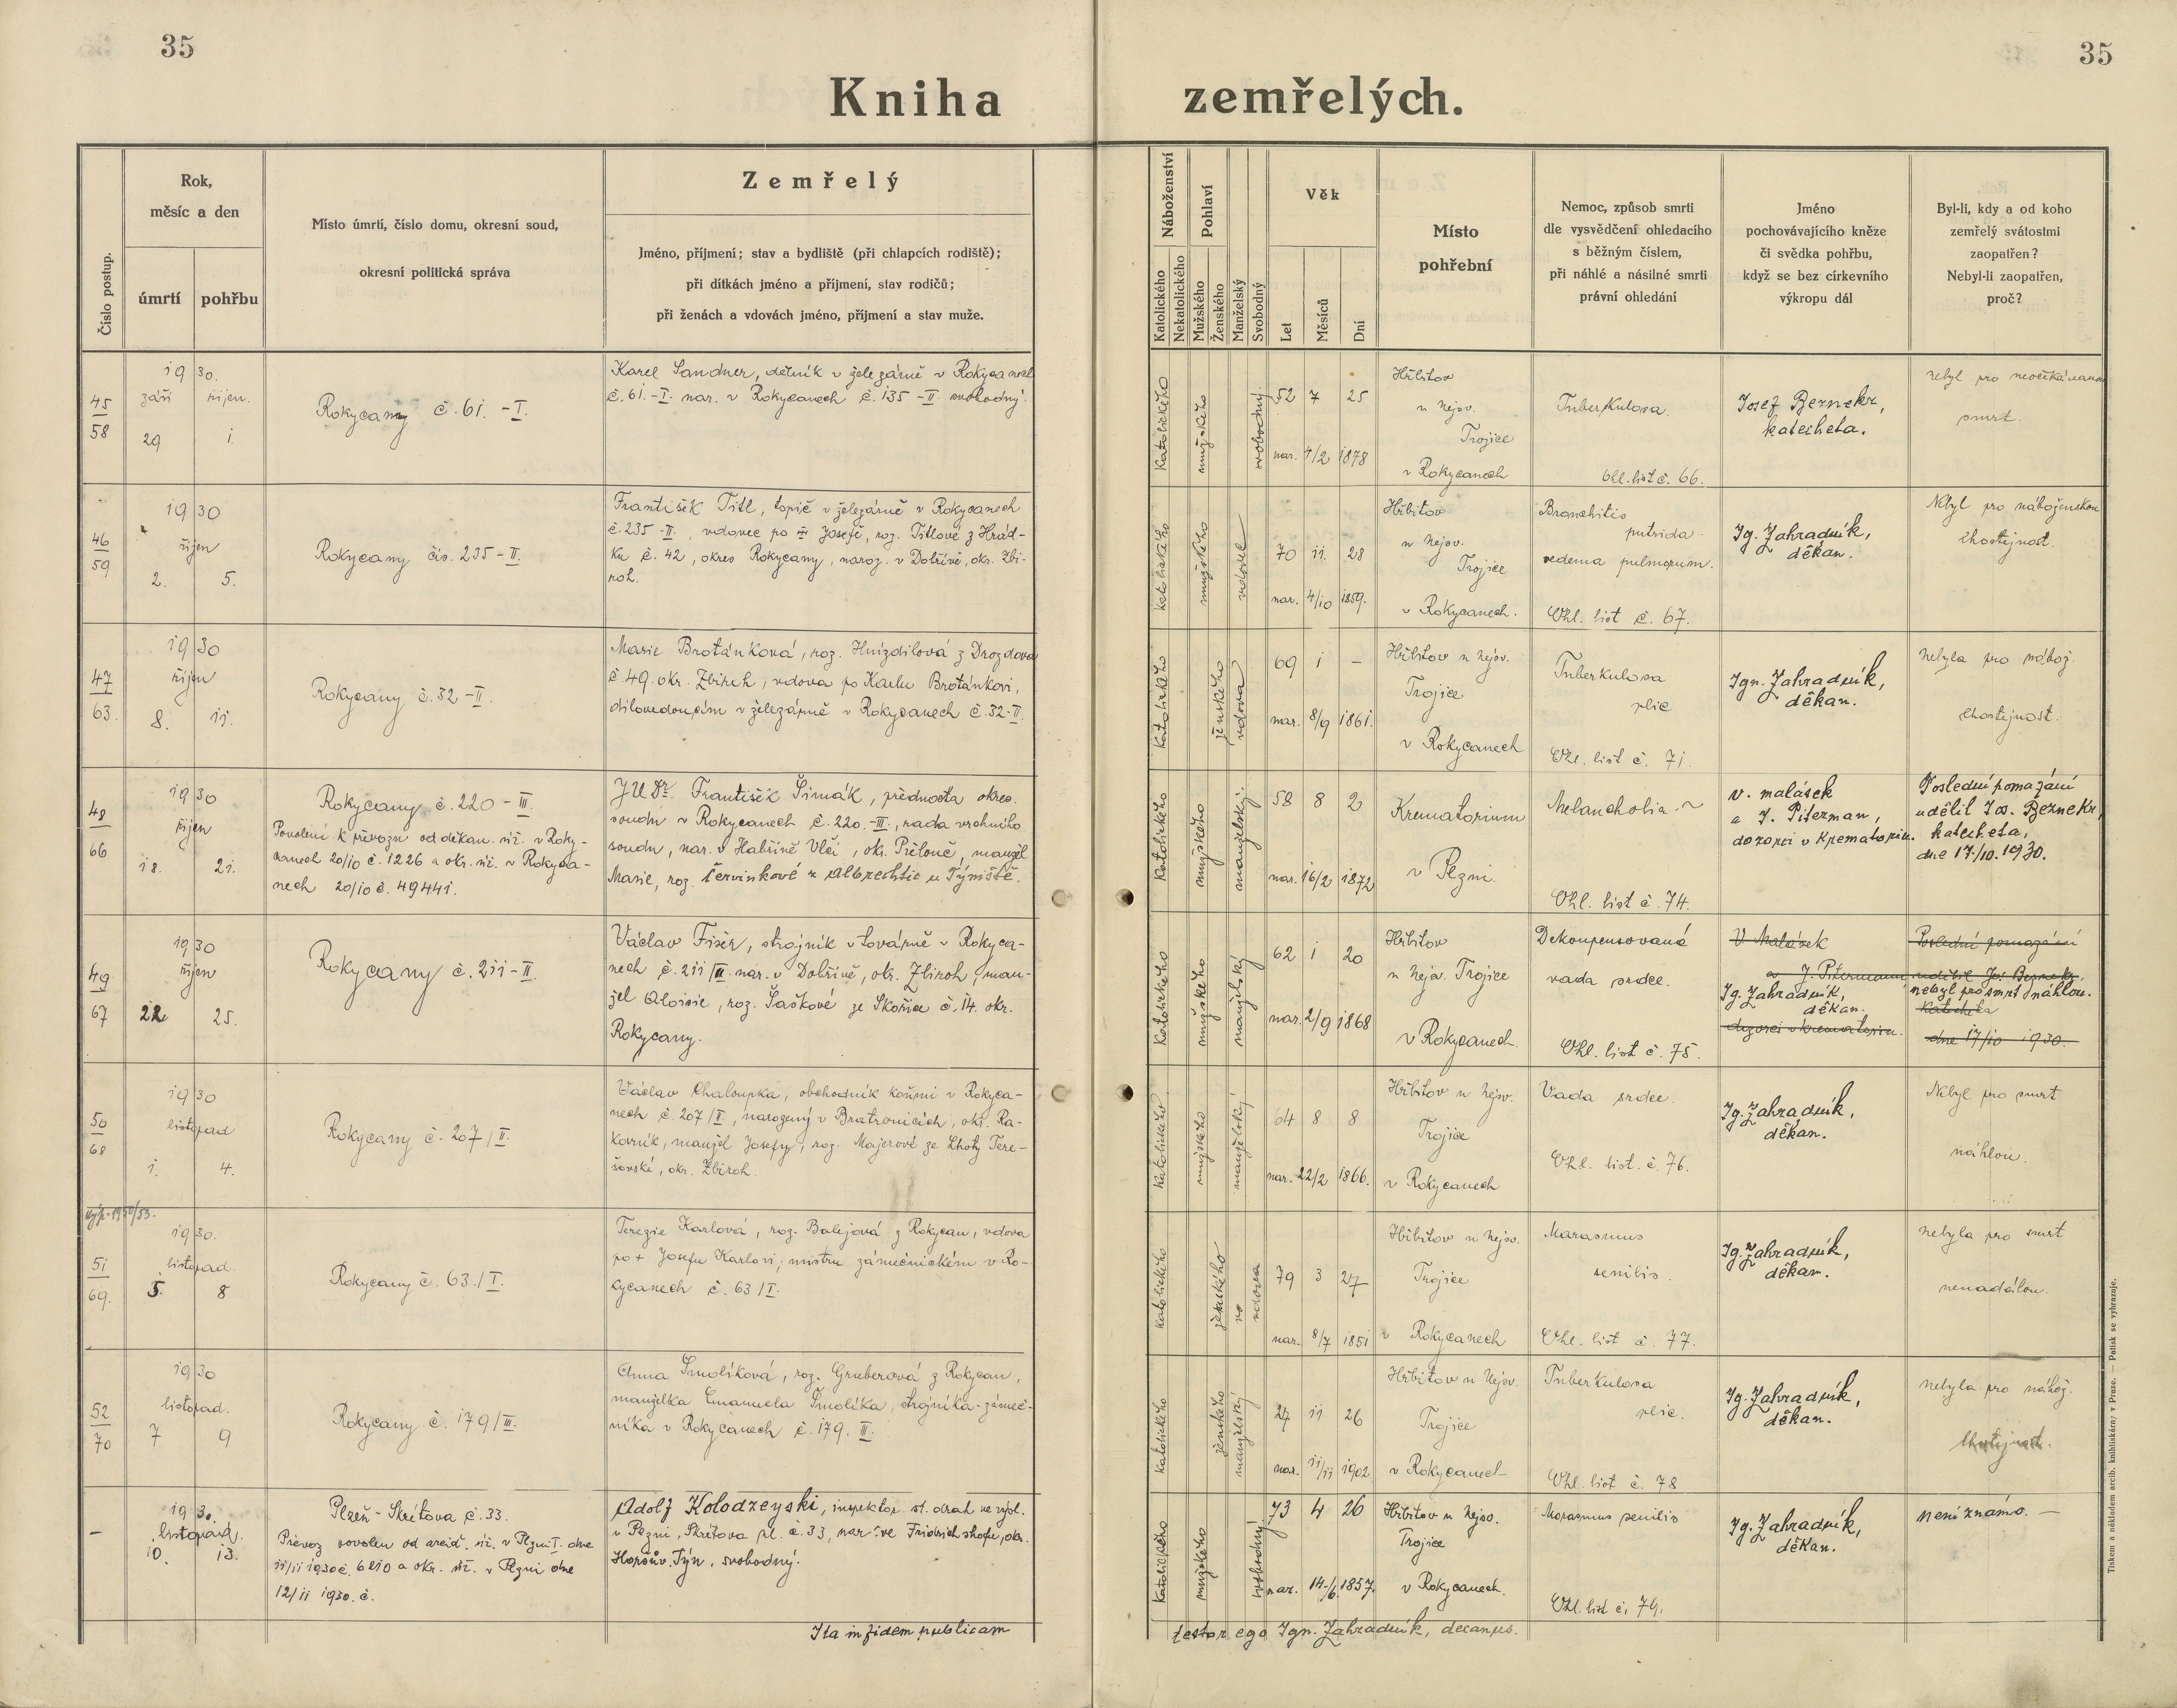 35
35
Kniha zemřelých.
Číslo postup.
Rok,
měsíc a den
úmrtí
pohřbu
Místo úmrtí, číslo domu, okresní soud,
okresní politická správa
Zemřelý
Jméno, příjmení; stav a bydliště (při chlapcích rodiště);
při dítkách jméno a příjmení, stav rodičů;
při ženách a vdovách jméno, příjmení a stav muže.
Náboženství
Katolického
Nekatolického
Pohlaví
Mužského
Ženského
Manželský
Svobodný
Věk
Let
Měsíců
Dní
Místo
pohřební
Nemoc, způsob smrti
dle vysvědčení ohledacího
s běžným číslem,
při náhlé a násilné smrti
právní ohledání
Jméno
pochovávajícího kněze
či svědka pohřbu,
když se bez církevního
výkropu dál
Byl-li, kdy a od koho
zemřelý svátostmi
zaopatřen?
Nebyl-li zaopatřen,
proč?
45
58
1930.
září říjen.
29 1
Rokycany č. 61. - I.
Karel Sandner, dělník v železárně v Rokycanech
č. 61. - I. nar. v Rokycanech č. 135 - II. svobodný.
katolického
mužského
svobodný
52 7 25
nar. 4/2 1878
Hřbitov
u nejsv.
Trojice
v Rokycanech
Tuberkulosa.
Ohl. list č. 66.
Josef Beznekr,
katecheta.
nebyl pro neočekávanou
smrt.
46
59
1930
říjen
2. 5.
Rokycany čís. 235 - II.
František Titl, topič v železárně v Rokycanech
č. 235 - II., vdovec po Josefě, roz. Titlové z Hrád-
ku č. 42, okres Rokycany, naroz. v Dobřívě, okr. Zbi-
roh.
katolického
mužského
vdovec
70 11 28
nar. 4/10 1859.
Hřbitov
u nejsv.
Trojice
v Rokycanech.
Bronchitis
putrida
oedema pulmorum.
Ohl. list č. 67.
Ig. Zahradník,
děkan.
Nebyl pro náboženskou
lhostejnost.
47
63.
1930
říjen
8. 11.
Rokycany č. 32 - II.
Marie Brotánková, roz. Hnízdilová z Drozdova
č. 49. okr. Zbiroh, vdova po Karlu Brotánkovi,
dílovedoucím v železárně v Rokycanech č. 32 - II.
katolického
ženského
vdova
69 1 -
nar. 8/9 1861.
Hřbitov u nejsv.
Trojice
v Rokycanech
Tuberkulosa
plic
Ohl. list č. 71.
Ign. Zahradník,
děkan.
nebyla pro nábož.
lhostejnost.
48
66
1930
říjen
18. 21.
Rokycany č. 220 - III.
Povolení k převozu od děkan. úř. v Roky-
canech 20/10 č. 1226 a okr. úř. v Rokyca-
nech 20/10 č. 49441.
JUDr. František Šimák, přednosta okres.
soudu v Rokycanech č. 220. - III., rada vrchního
soudu, nar. v Habřině Vlčí, okr. Přelouč, manžel
Marie, roz. Červinkové z Albrechtic u Týniště.
katolického
mužského
manželský.
58 8 2
nar. 16/2 1872
Krematorium
v Plzni.
Melancholia.
Ohl. list č. 74.
V. Malásek
a J. Piterman,
dozorci v krematoriu.
Poslední pomazání
udělil Jos. Beznekr,
katecheta,
dne 17./10. 1930.
49
67
1930
říjen
22 25.
Rokycany č. 211 - II.
Václav Fišer, strojník v továrně v Rokyca-
nech č. 211/II. nar. v Dobřívě, okr. Zbiroh, man-
žel Aloisie, roz. Šaškové ze Skořice č. 14. okr.
Rokycany.
katolického
mužského
manželský
62 1 20
nar. 2/9 1868
Hřbitov
u nejsv. Trojice
v Rokycanech.
Dekompensovaná
vada srdce.
Ohl. list č. 75.
V Malásek
a J. Pitermann
Ig. Zahradník,
děkan.
dozorci v krematoriu.
Poslední pomazání
udělil Jos Beznekr.
nebyl pro smrt náhlou.
Katecheta
dne 17/10 1930.
50
68
1930
listopad
1. 4.
Rokycany č. 207/II.
Václav Chaloupka, obchodník koňmi v Rokyca-
nech č. 207/II, narozený v Bratronicích, okr. Ra-
kovník, manžel Josefy, roz. Majerové ze Lhoty Tere-
šovské, okr. Zbiroh.
katolického
mužského
manželský
64 8 8
nar. 22/2 1866.
Hřbitov u nejsv.
Trojice
v Rokycanech
Vada srdce.
Ohl. list. č. 76.
Ig. Zahradník,
děkan.
Nebyl pro smrt
náhlou.
51
69.
1930.
listopad.
5. 8
Rokycany č. 63./I.
Terezie Karlová, roz. Balejová z Rokycan, vdova
po + Josefu Karlovi, mistru zámečnickém v Ro-
kycanech č. 63/I.
katolického
ženského
vdova
79 3 27
nar. 8/7 1851
Hřbitov u nejsv.
Trojice
v Rokycanech
Marasmus
senilis.
Ohl. list č. 77.
Ig. Zahradník,
děkan.
nebyla pro smrt
nenadálou.
52
70
1930
listopad.
7 9
Rokycany č. 179/III.
Anna Smolíková, roz. Gruberová z Rokycan,
manželka Emanuela Smolíka, strojníka-zámeč-
níka v Rokycanech č. 179. III.
katolického
ženského
manželský
27 11 26
nar. 11/11 1902
Hřbitov u Nejsv.
Trojice
v Rokycanech
Tuberkulosa
plic.
Ohl. list č. 78
Ig. Zahradník,
děkan.
nebyla pro nábož.
lhostejnost.
-
1930.
listopad.
10. 13.
Plzeň - Škrétova č. 33.
Převoz povolen od arcid. úř. v Plzni I. dne
11/11 1930 č. 6210 a okr. úř. v Plzni dne
12/11 1930. č.
Adolf Kolodzeyski, inspektor st. drah ve výsl.
v Plzni, Škrétova pl. č. 33, nar. ve Friedrichshofu, okr.
Horšův. Týn, svobodný.
katolického
mužského
svobodný
73 4 26
nar. 14./6. 1857.
Hřbitov u Nejsv.
Trojice
v Rokycanech.
Marasmus senilis
Ohl. list č. 79.
Ig. Zahradník,
děkan.
není známo. —
Ita in fidem publicam
testor ego Ign. Zahradník, decanus.
Tiskem a nákladem arcib. knihtiskárny v Praze. — Patisk se vyhrazuje.